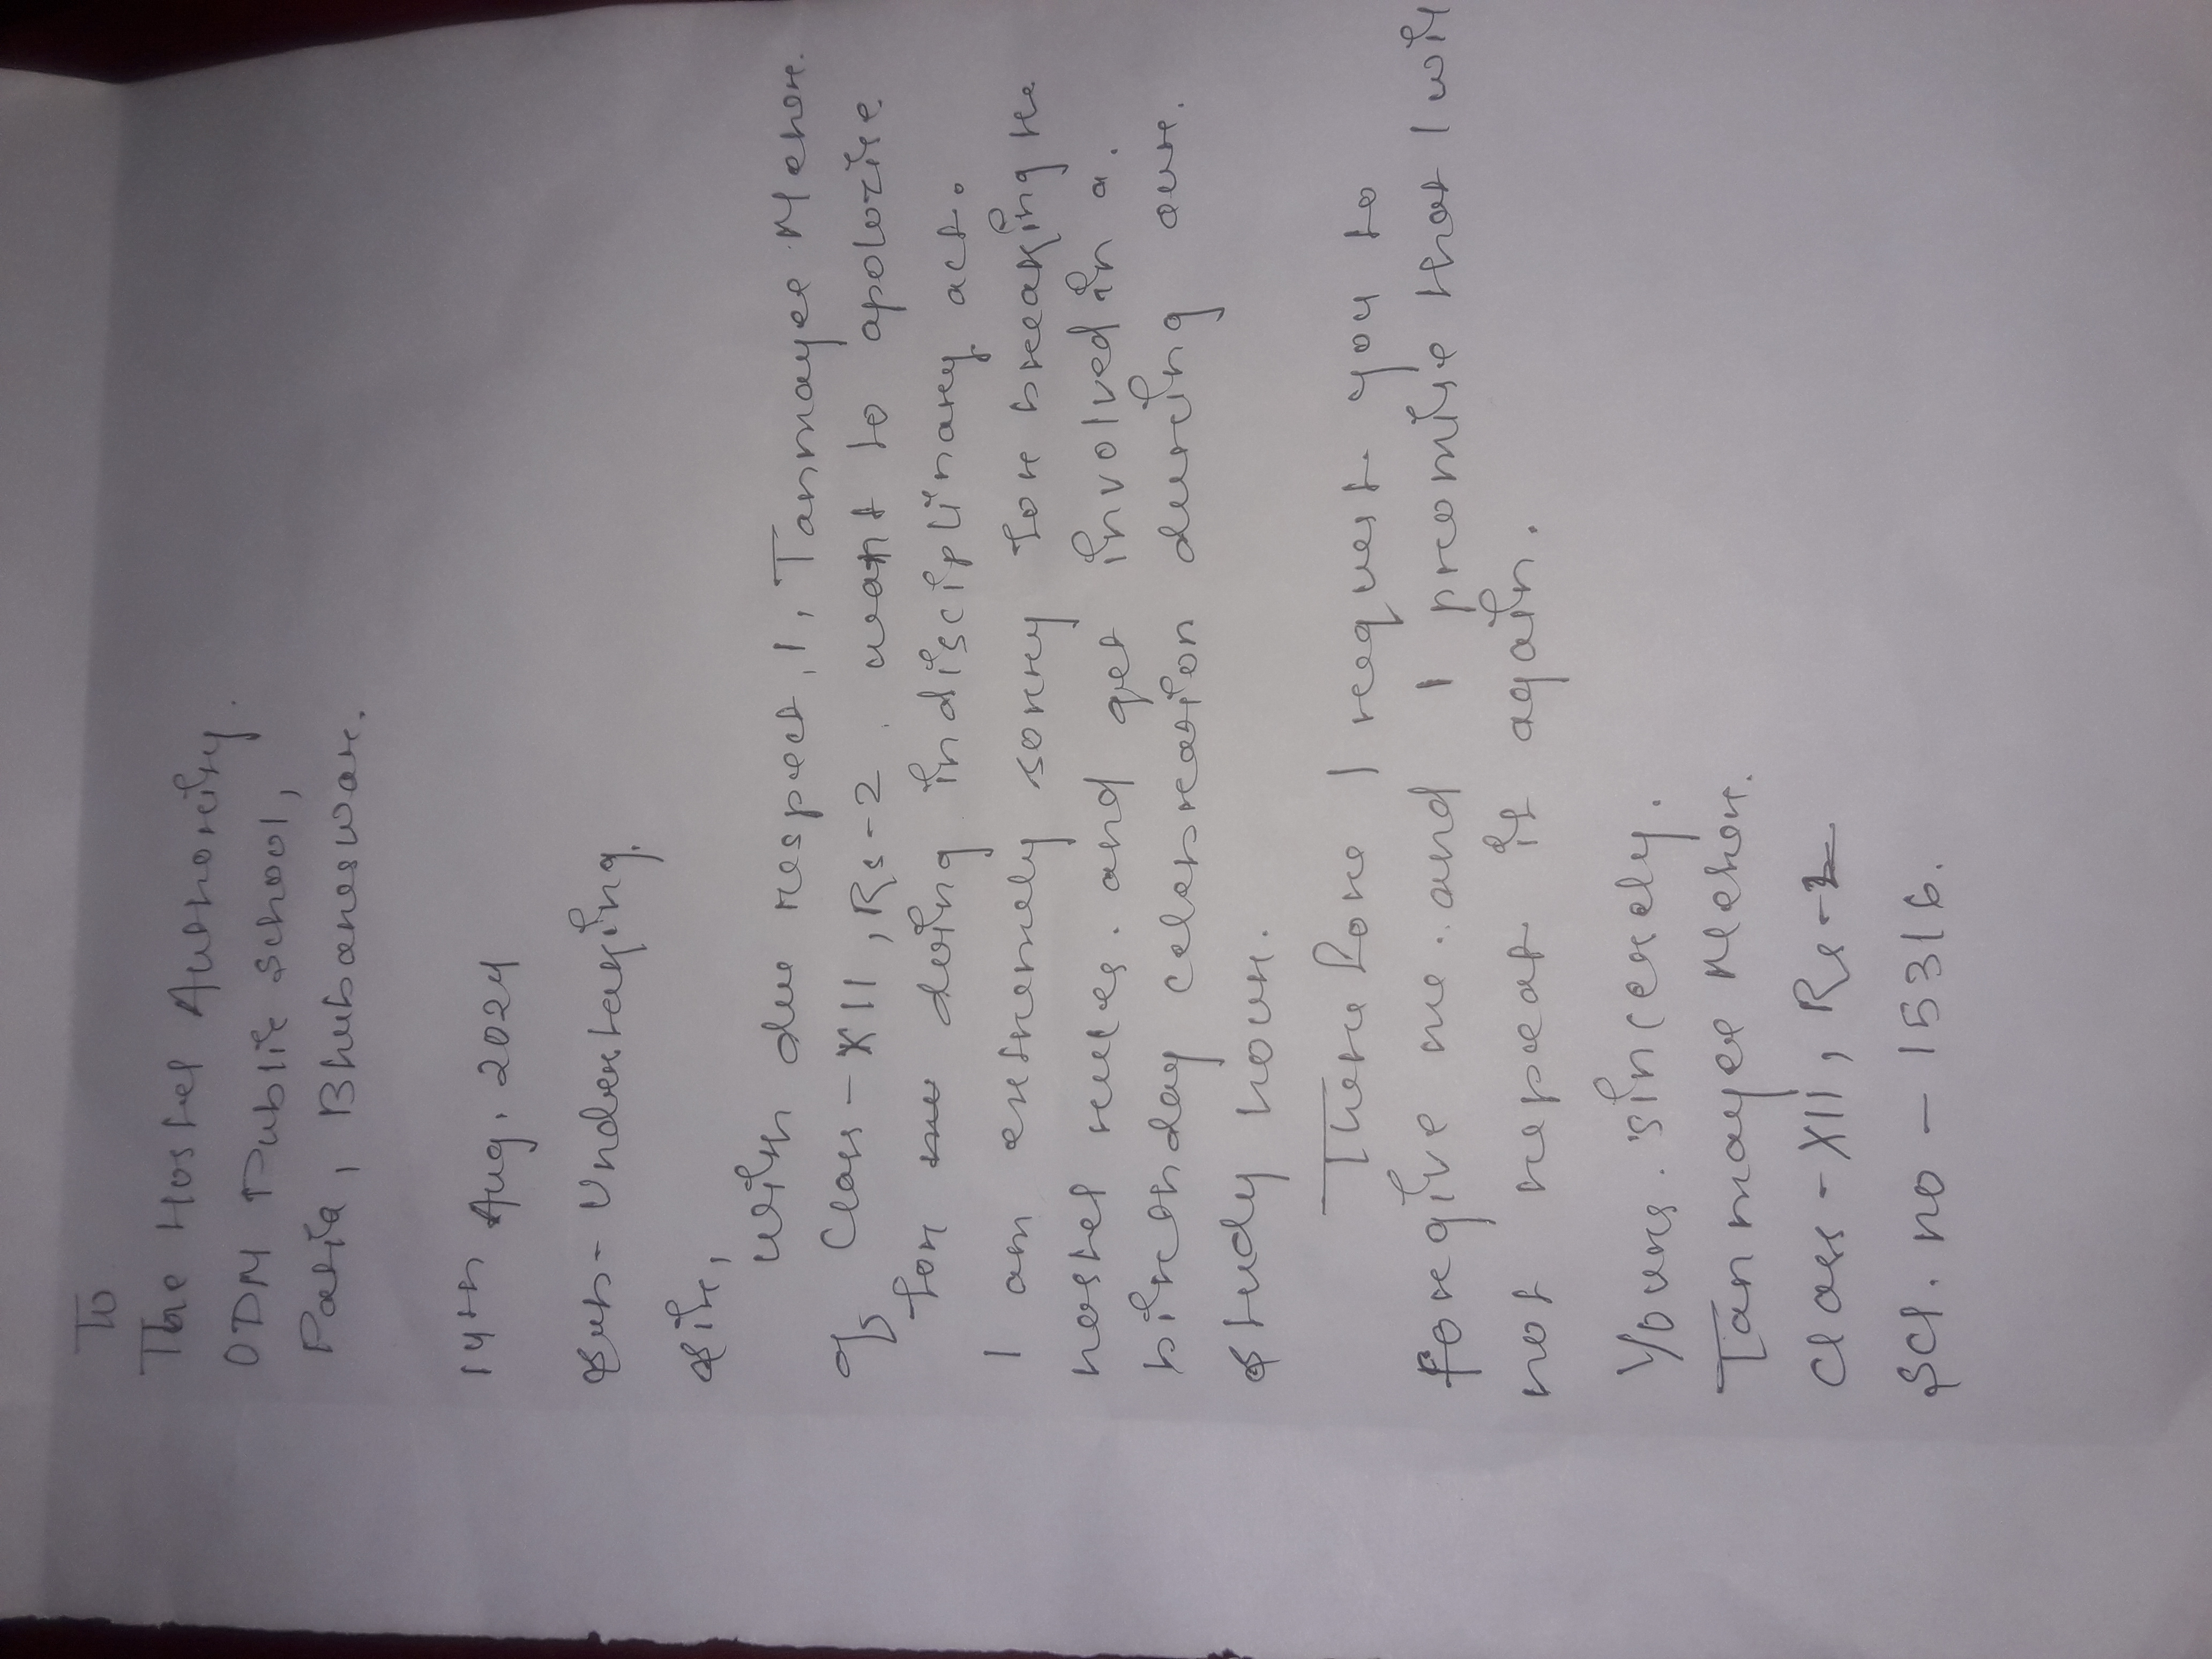 To
The Hostel Authority.
ODM Public School,
Patia, Bhubaneswar.
14th Aug, 2024
Sub- Undertaking.
Sir,
With due respect, I, Tanmayee Meher
of Class-XII, Rs-2 want to apolozise
for doing indisciplinary act.
I am extremely sorry for breaking the
hostel rules. and get involved in a.
birthday celebration during our.
study hour.
Therefore I request you to
forgive me. and I promise that I will
not repeat it again.
Yours. sincerely.
Tanmayee Meher.
Class-XII, Rs-2
Scl. no - 15316.